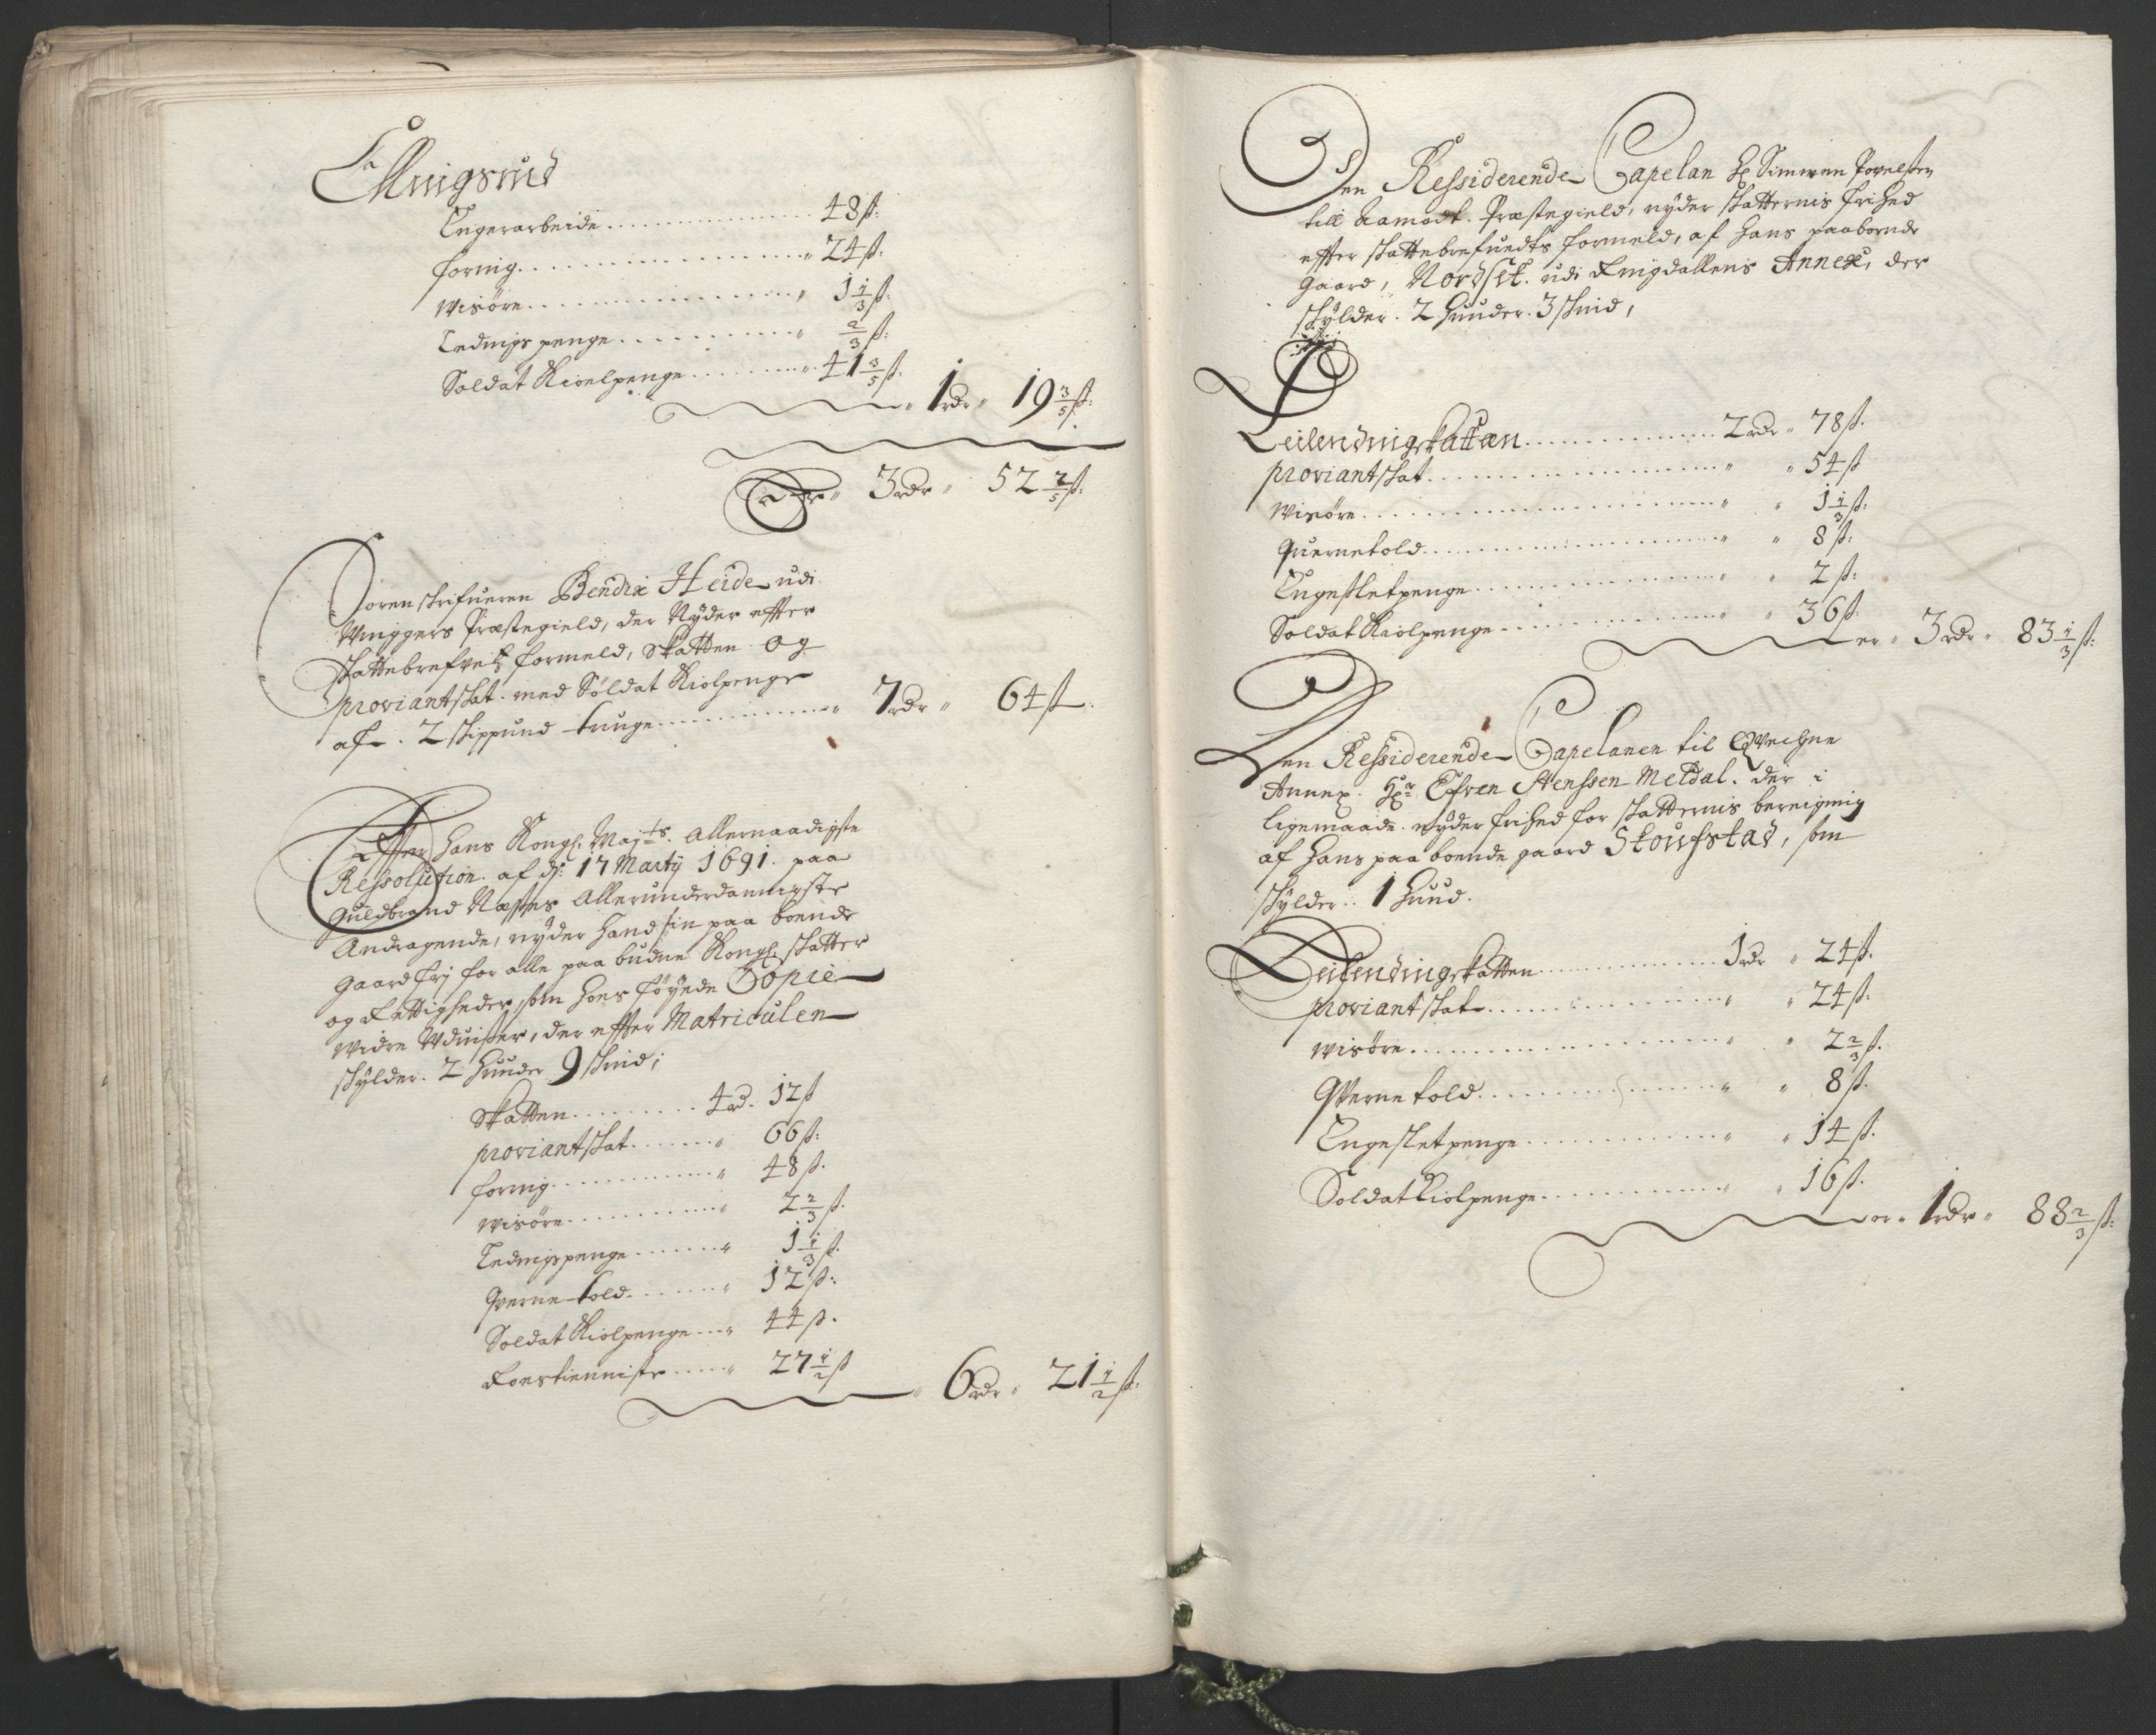 Ellingsrud
Engerarbeide ................ 48 ß:
foring ................ " 24 ß:
Wisøre ................ " 1 1/3 ß:
Ledings penge ........... " 2/3 ß:
Soldat Kioelpenge .......... " 41 3/5 ß:
" 1 rdr " 19 3/5 ß:
er " 3 rdr " 52 2/5 ß:
Sorenskrifueren Bendix Heide udi
Winggers Præstegield, der Nyder effter
skattebrefvetz formeld, skatten og
proviantskat. med Soldat Kiolpenge
af. 2 skippund tunge ............ " 7 rdr " 64 ß.
Effter Hans Kongl. Maj.ts Allernaadigste
Ressolution. af d: 17 Martij 1691. paa
Guldbrand Næsses Allerunderdannigste
Andragende, nyder hand sin paa boende
gaard frj for alle paa budne Kongl. skatter
og Rettigheder, som hoes føyede Copie
widre Wduißer, der effter Matriculen
skylder. 2 Huuder 9 skind;
Skatten ......... 4 rd. 12 ß
proviantskat ....... " 66 ß:
foring ............ " 48 ß.
Wisøre ........... " 2 2/3 ß.
Ledingspenge ....... " 1 1/3 ß.
Qverne told ....... " 12 ß:
Soldat Kiolpenge .... " 44 ß.
Roestienniste ...... " 27 1/2 ß
" 6 rdr " 21 1/2 ß:
Den Ressiderende Capelan Hr Simmen Povelßen
till Aamodt. Præstegield, nyder skatternis frihed
effter skattebrefuedts formeld, af hans paaboende
gaard, Nordset. udi Ringdallens Annex, der
skylder. 2 Huuder. 3 skind,
Leilendingskatten ................ 2 rdr " 78 ß.
proviantskat ................ " " 54 ß
Wisøre ................ " " 1 1/3 ß:
Quernetold ................ " " 8 ß:
Engesletpenge ................ " " 2 ß:
Soldat Kiolpenge ................ " " 36 ß:
er " 3 rdr " 83 1/3 ß:
Den Ressiderende Capelanen til Qveihne
Annex. Hr Efven Stenssen Meldal. der i
ligemaade. nyder frihed for skatternis bereigning
af hans paa boende gaard Stoufstad, som
skylder. 1 Huud.
Leilendingskatten .............. 1 rdr " 24 ß.
proviantskat .............. " " 24 ß.
Wisøre .............. " " 2 2/3 ß.
Qverne told .............. " " 8 ß.
Engesletpenge .............. " " 14 ß.
Soldat Kiolpenge .............. " " 16 ß.
er " 1 rdr " 88 2/3 ß: